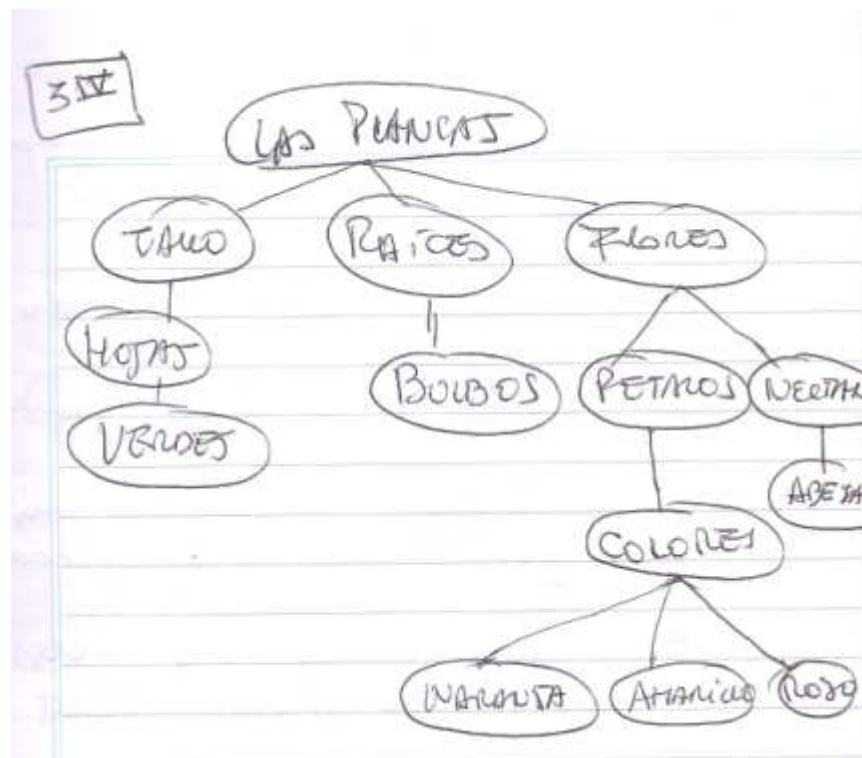 3 IV
LAS PLANTAS
TALLO RAÍCES FLORES
HOJAS
BULBOS PETALOS NECTAR
VERDES
ABEJA
COLORES
NARANJA AMARILLO ROJO